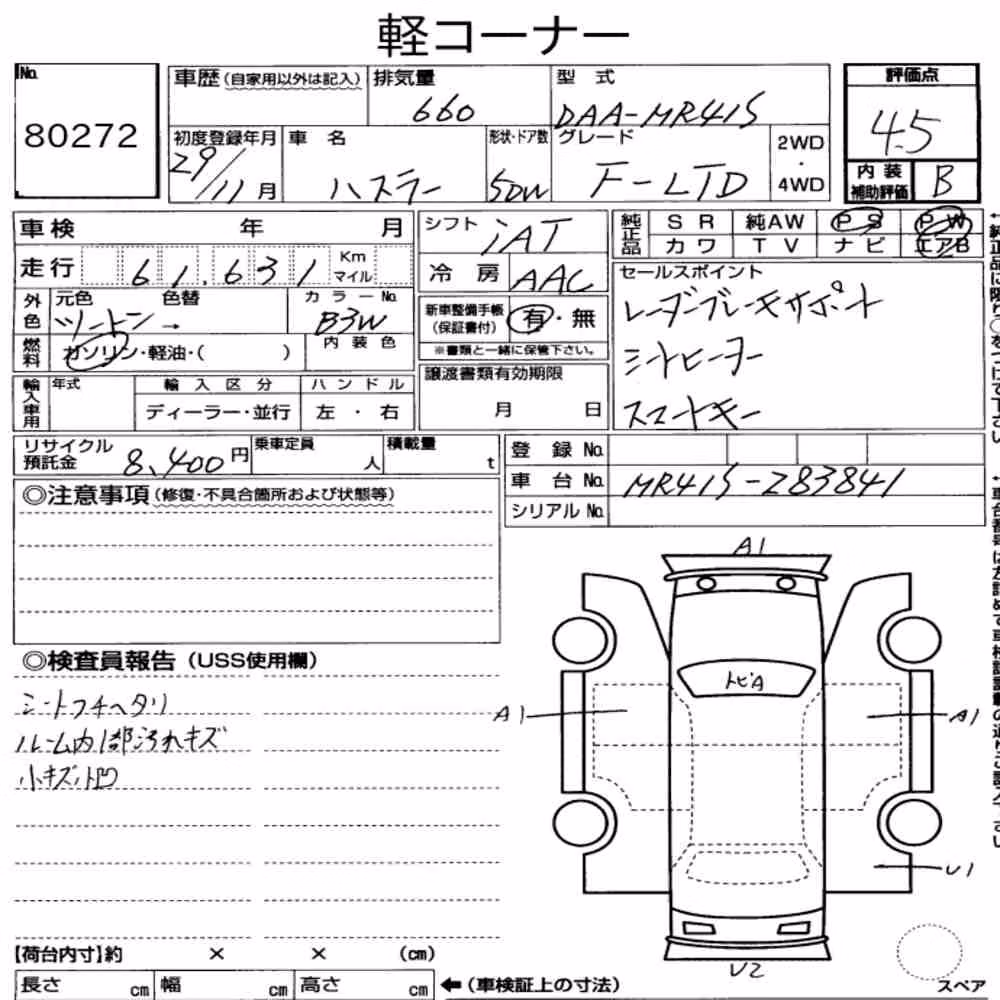 軽コーナー
No. 80272
車歴(自家用以外は記入) 排気量 660 型式 DAA-MR41S
初度登録年月 29/11月 車名 ハスラー 形状・ドア数 5DW グレード F-LTD 2WD・4WD
評価点 4.5
内装補助評価 B
車検 年 月
走行 61,631 Km マイル
外色 元色 ツートン 色替 → カラーNo. B3W
燃料 ガソリン・軽油・( ) 内装色
輸入車用 年式 輸入区分 ディーラー・並行 ハンドル 左・右
シフト iAT
冷房 AAC
新車整備手帳(保証書付) 有・無
※書類と一緒に保管下さい。
譲渡書類有効期限 月 日
純正品 SR 純AW PS PW
カワ TV ナビ エアB
セールスポイント
レーダーブレーキサポート
シートヒーター
スマートキー
リサイクル預託金 8,400円 乗車定員 人 積載量 t
登録No.
車台No. MR41S-283841
シリアルNo.
◎注意事項(修復・不具合箇所および状態等)
◎検査員報告(USS使用欄)
シートフチヘタリ
ルーム内1部汚れキズ
小キズ小凹
A1
トビA
A1
A1
U1
U2
【荷台内寸】約 × × (cm)
長さ cm 幅 cm 高さ cm ←(車検証上の寸法)
スペア